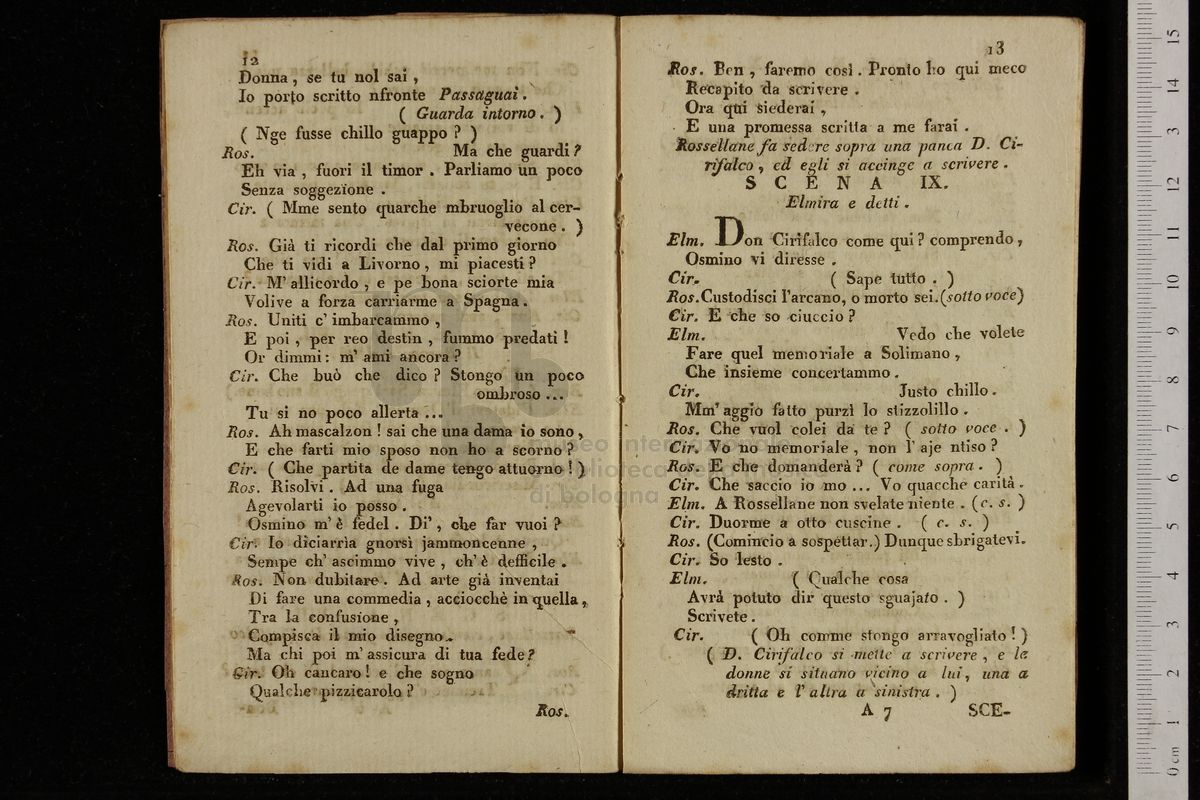 12
Donna, se tu nol sai,
Io porto scritto nfronte Passaguai.
( Guarda intorno. )
( Nge fusse chillo guappo ? )
Ros. Ma che guardi?
Eh via, fuori il timor. Parliamo un poco
Senza soggezione.
Cir. ( Mme sento quarche mbruoglio al cer-
vecone. )
Ros. Già ti ricordi che dal primo giorno
Che ti vidi a Livorno, mi piacesti?
Cir. M' allicordo, e pe bona sciorte mia
Volive a forza carriarme a Spagna.
Ros. Uniti c' imbarcammo,
E poi, per reo destin, fummo predati!
Or dimmi: m' ami ancora?
Cir. Che buò che dico? Stongo un poco
ombroso ...
Tu si no poco allerta ...
Ros. Ah mascalzon! sai che una dama io sono,
E che farti mio sposo non ho a scorno?
Cir. ( Che partita de dame tengo attuorno! )
Ros. Risolvi. Ad una fuga
Agevolarti io posso.
Osmino m' è fedel. Di', che far vuoi?
Cir. Io diciarria gnorsì jammoncenne,
Sempe ch' ascimmo vive, ch' è defficile.
Ros. Non dubitare. Ad arte già inventai
Di fare una commedia, acciocchè in quella,
Tra la confusione,
Compisca il mio disegno.
Ma chi poi m' assicura di tua fede?
Cir. Oh cancaro! e che sogno
Qualche pizzicarolo?
Ros.
13
Ros. Ben, faremo così. Pronto ho qui meco
Recapito da scrivere.
Ora qui siederai,
E una promessa scritta a me farai.
Rossellane fa sedere sopra una panca D. Ci-
rifalco, ed egli si accinge a scrivere.
SCENA IX.
Elmira e detti.
Elm. Don Cirifalco come qui? comprendo,
Osmino vi diresse.
Cir. ( Sape tutto. )
Ros. Custodisci l'arcano, o morto sei. (sotto voce)
Cir. E che so ciuccio?
Elm. Vedo che volete
Fare quel memoriale a Solimano,
Che insieme concertammo.
Cir. Justo chillo.
Mm' aggio fatto purzì lo stizzolillo.
Ros. Che vuol colei da te? ( sotto voce. )
Cir. Vo no memoriale, non l' aje ntiso?
Ros. E che domanderà? ( come sopra. )
Cir. Che saccio io mo ... Vo quacche carità.
Elm. A Rossellane non svelate niente. (c. s. )
Cir. Duorme a otto cuscine. ( c. s. )
Ros. (Comincio a sospettar.) Dunque sbrigatevi.
Cir. So lesto.
Elm. ( Qualche cosa
Avrà potuto dir questo sguajato. )
Scrivete.
Cir. ( Oh comme stongo arravogliato! )
( D. Cirifalco si mette a scrivere, e le
donne si situano vicino a lui, una a
dritta e l' altra a sinistra. )
A 7 SCE-
museo internazionale
e biblioteca della musica
di bologna
0 cm 1 2 3 4 5 6 7 8 9 10 11 12 13 14 15